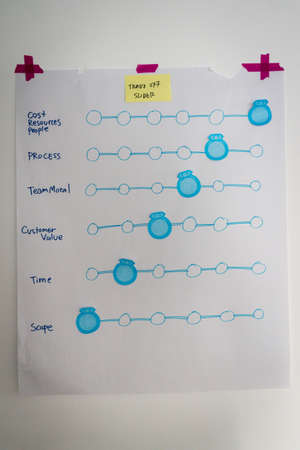 TRADE OFF
SLIDER
Cost
Resources
People
PROCESS
Team Moral
Customer
Value
Time
Scope